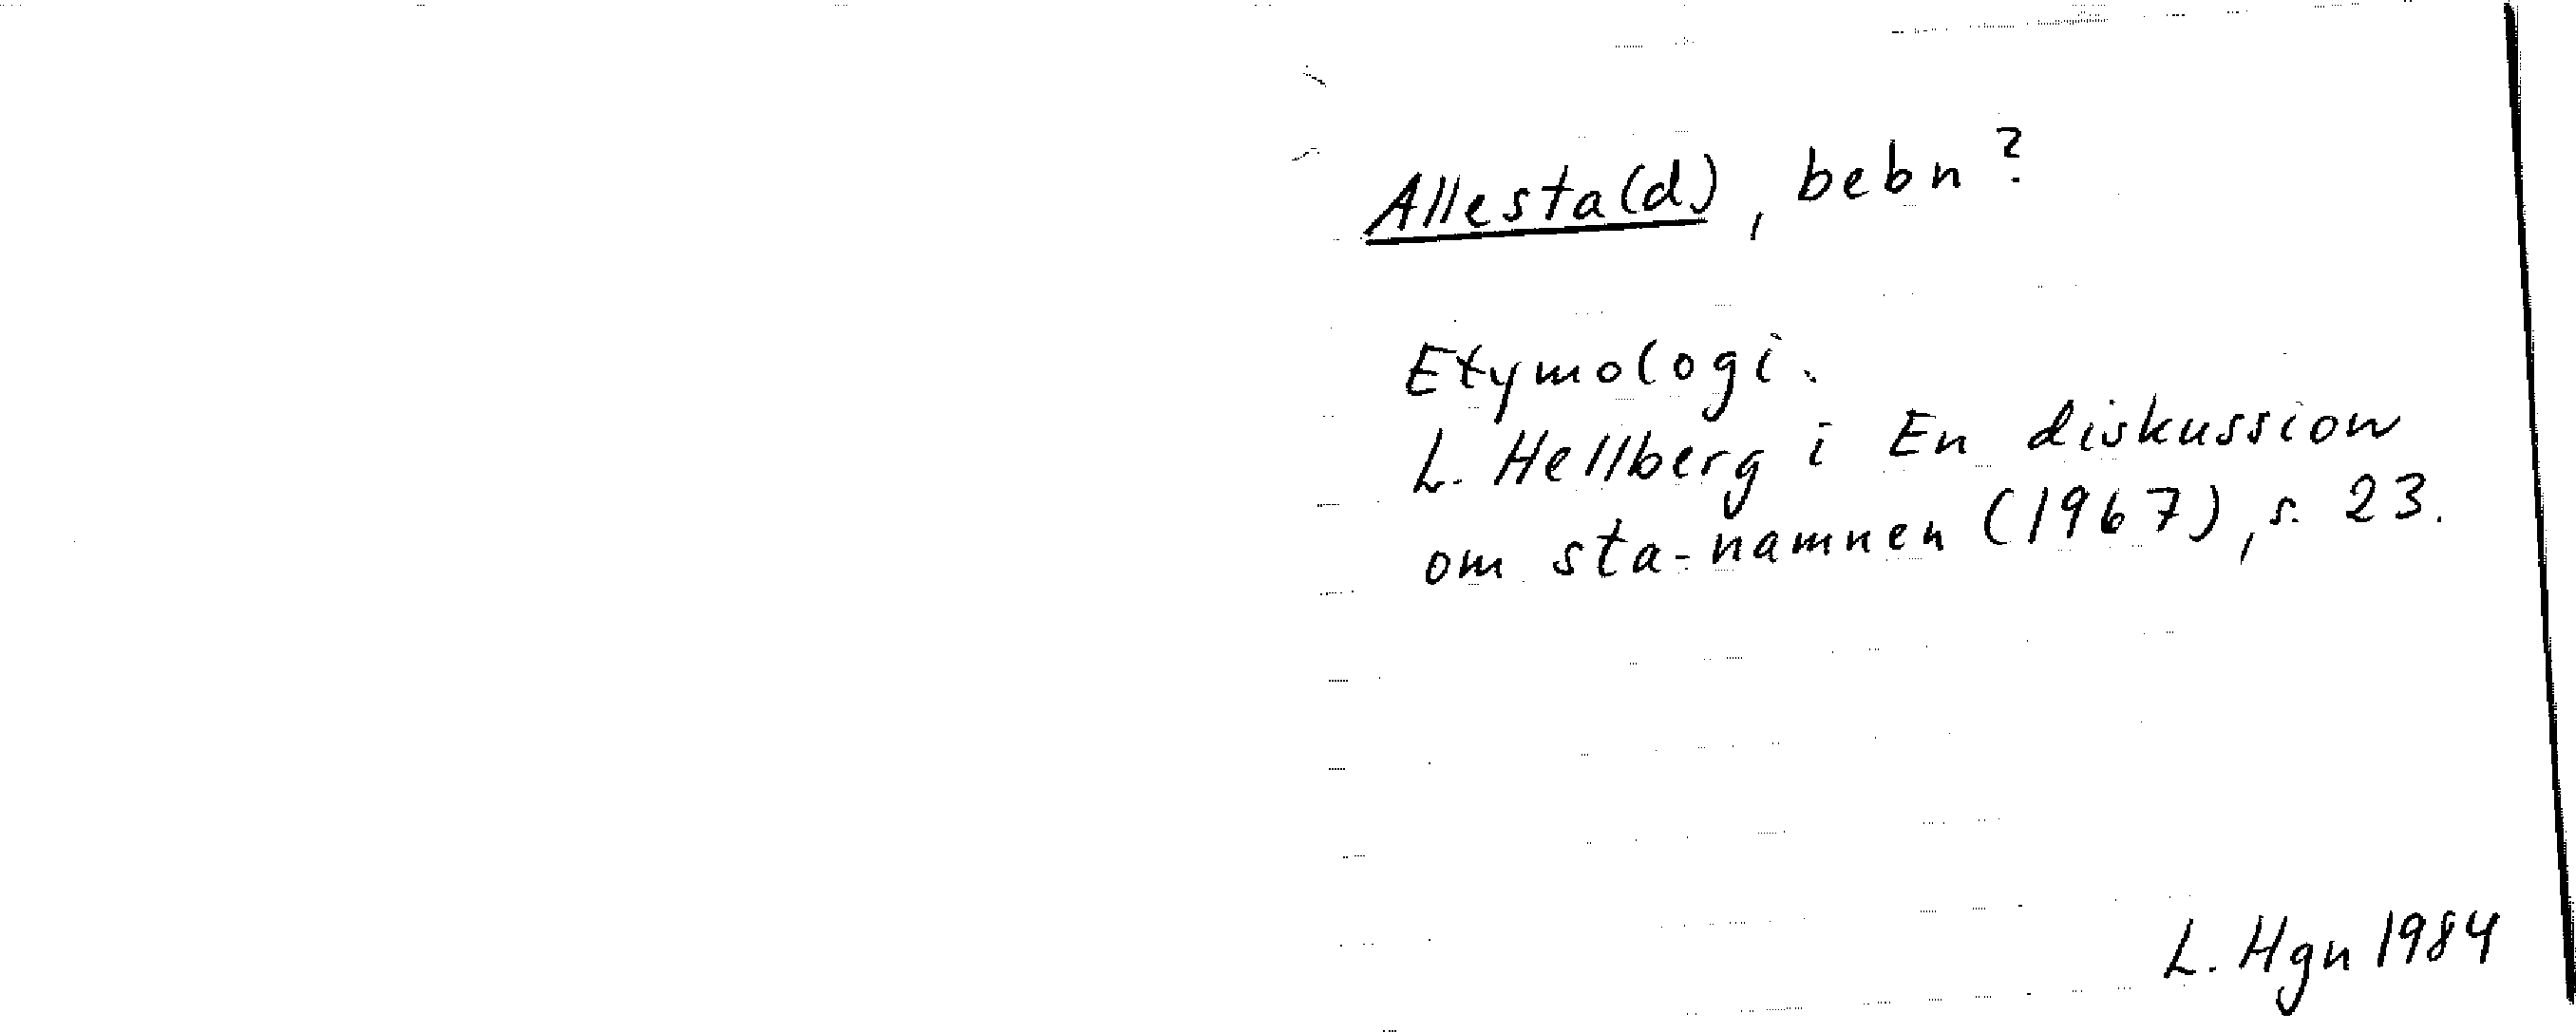 Allesta(d), bebn?
Etymologi.
L. Hellberg i En diskussion
om sta-namnen (1967), s. 23.
L. Hgn 1984